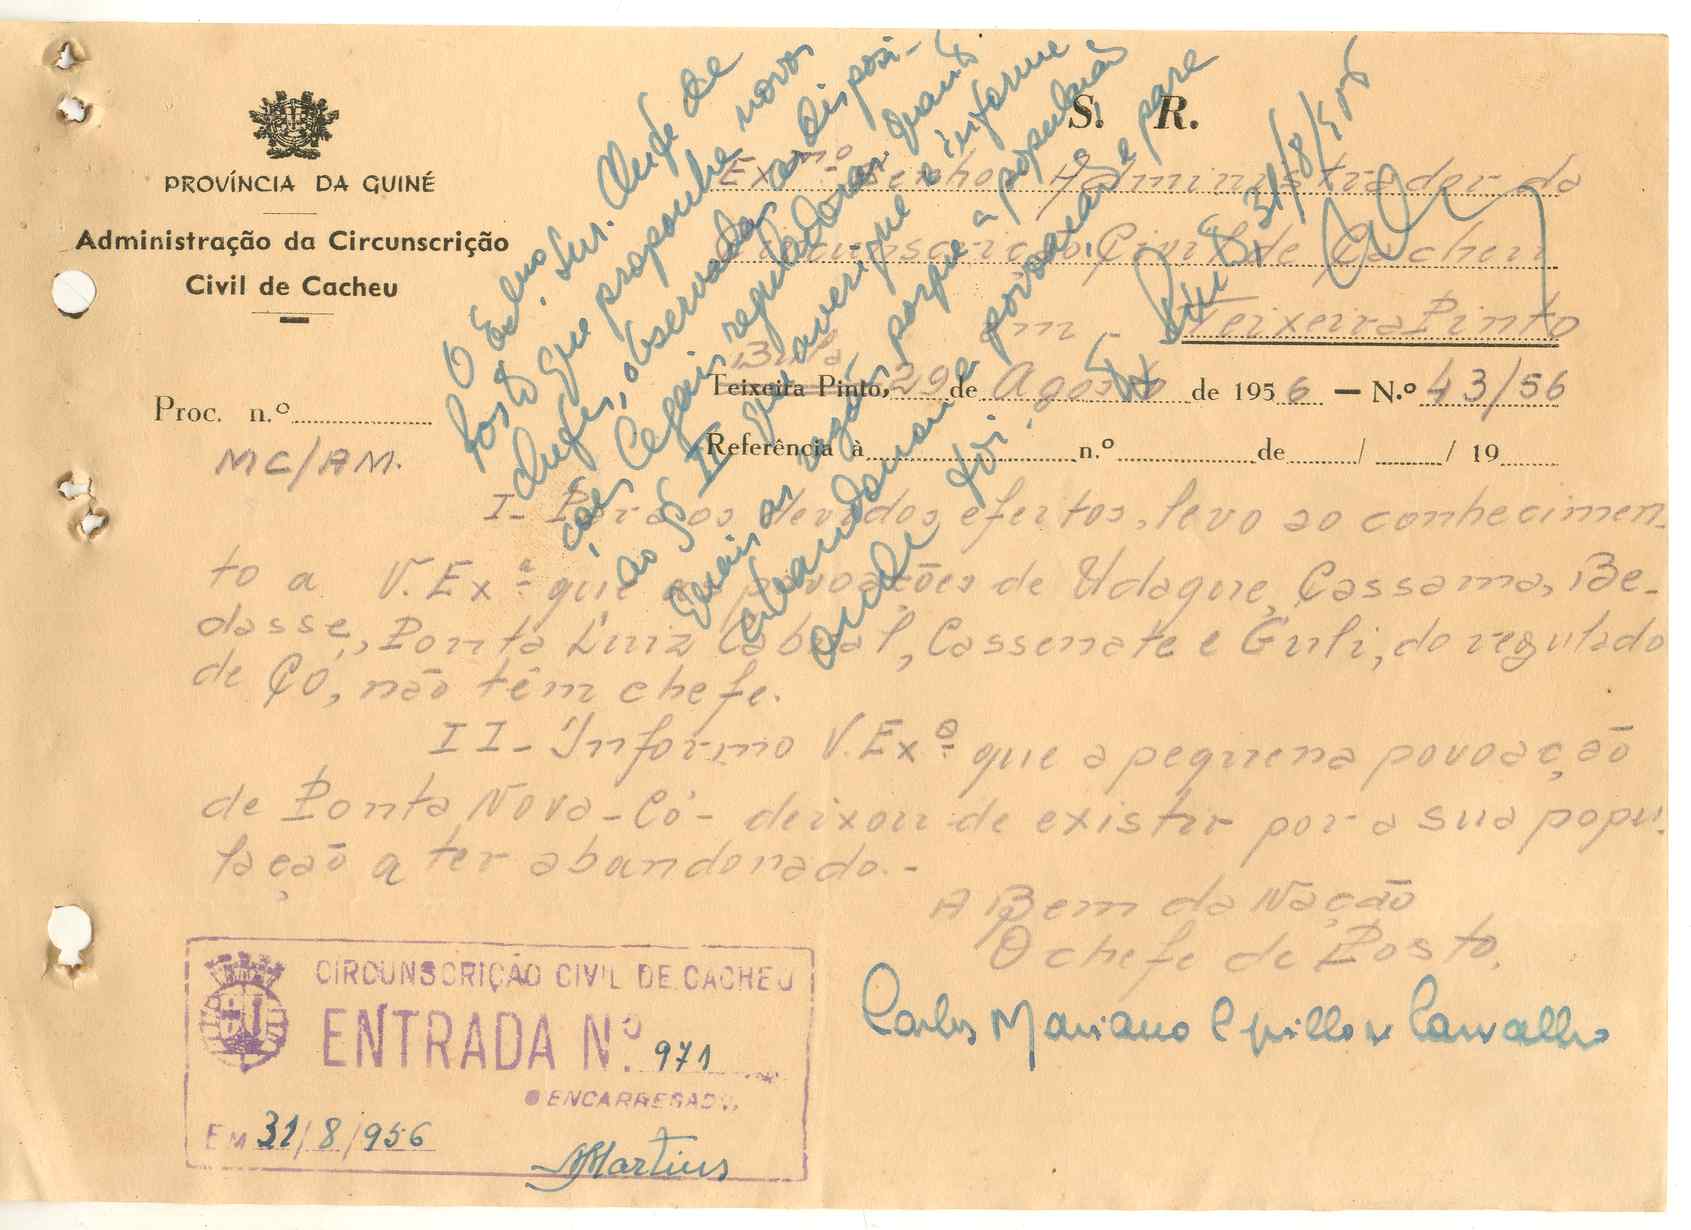 S. R.
PROVÍNCIA DA GUINÉ
Administração da Circunscrição
Civil de Cacheu
Ex.mo Senhor Administrador da
Circunscrição Civil de Cacheu
em -
Teixeira Pinto
Bula
Teixeira Pinto, 29 de Agosto de 1956 — N.º 43/56
Proc. n.º
Referência à n.º de / / 19
MC/AM.
I - Para os devidos efeitos, levo ao conhecimen-
to a V. Ex.ª que as povoações de Udague, Cassama, Be-
dasse, Ponta Luiz Cabral, Cassenate e Guli, do regulado
de Có, não têm chefe.
II - Informo V. Ex.ª que a pequena povoação
de Ponta Nova - Có - deixou de existir por a sua popu-
lação a ter abandonado. -
A Bem da Nação
O chefe de Posto,
Carlos Mariano Carvalho
O Exmo. Snr. Chefe de
Posto que proponha novos
chefes, observadas as disposi-
ções legais reguladoras. Quanto
ao § II que averigue e informe
quais as razões porque a população
abandonou a povoação e para
onde foi.
31/8/956
CIRCUNSCRIÇÃO CIVIL DE CACHEU
ENTRADA N.º 971
O ENCARREGADO,
EM 31/8/956
Martins